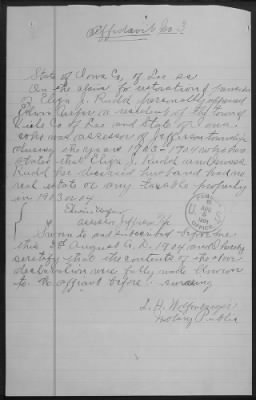 Affidavit No. 3
State of Iowa Co, of Lee ss
On the claim for restoration of pension
of Eliza J. Rudd personally appeared
Edwin a resident of the town of
Co of Lee and State of Iowa
who was assessor of Jefferson township
during the years 1903 - 1904 who has
stated that Eliza J. Rudd and
Rudd her deceased husband had no
real estate or any taxable property
in 1903 or 04
Edwin
assessor Jefferson Tp
Sworn to and subscribed before me
this 28 August A. D. 1904 and I hereby
certify that the contents of the above
declaration were fully made known
to the affiant before swearing
L. H.
Notary Public
U. S.